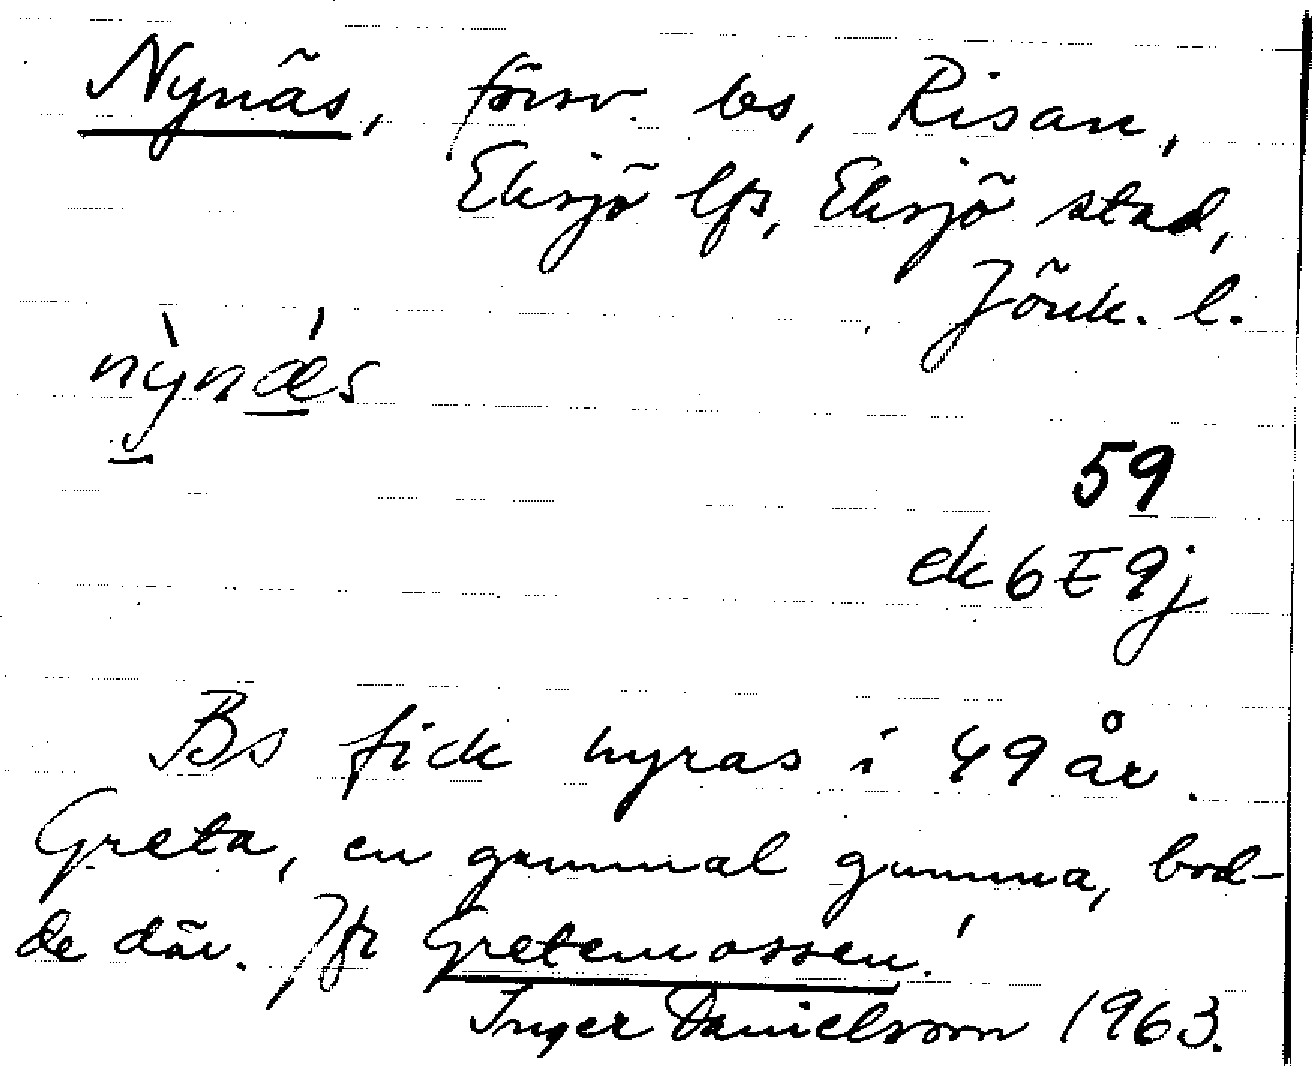 Nynäs, försv. bs, Risan,
Eksjö lfs, Eksjö stad,
Jönk. l.
nỳnǽs
59
ek 6 E 9j
Bs fick hyras i 49 år.
Greta, en gammal gumma, bod-
de där. Jfr Gretemossen!
Inger Danielsson 1963.